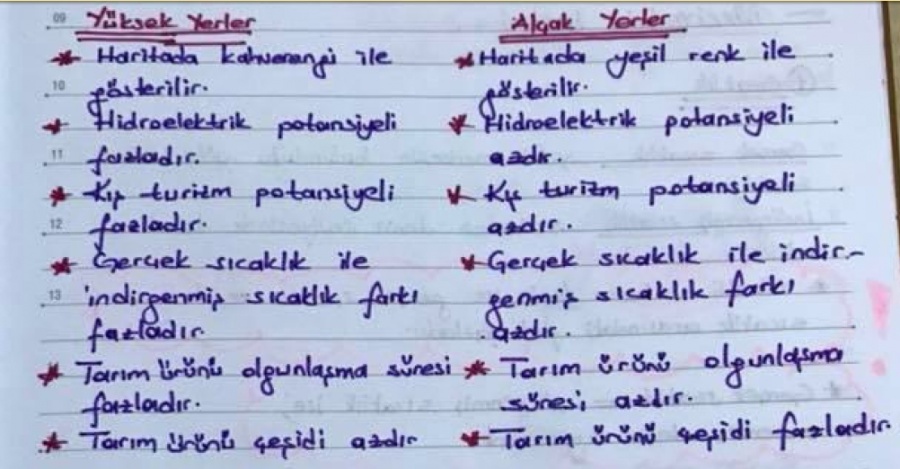 09 Yüksek Yerler
* Haritada kahverengi ile
10 gösterilir.
* Hidroelektrik potansiyeli
11 fazladır.
* Kış turizm potansiyeli
12 fazladır.
* Gerçek sıcaklık ile
13 indirgenmiş sıcaklık farkı
fazladır.
* Tarım ürünü olgunlaşma süresi
fazladır.
* Tarım ürünü çeşidi azdır
Alçak Yerler
* Haritada yeşil renk ile
gösterilir.
* Hidroelektrik potansiyeli
azdır.
* Kış turizm potansiyeli
azdır.
* Gerçek sıcaklık ile indir-
genmiş sıcaklık farkı
azdır.
* Tarım ürünü olgunlaşma
süresi azdır.
* Tarım ürünü çeşidi fazladır